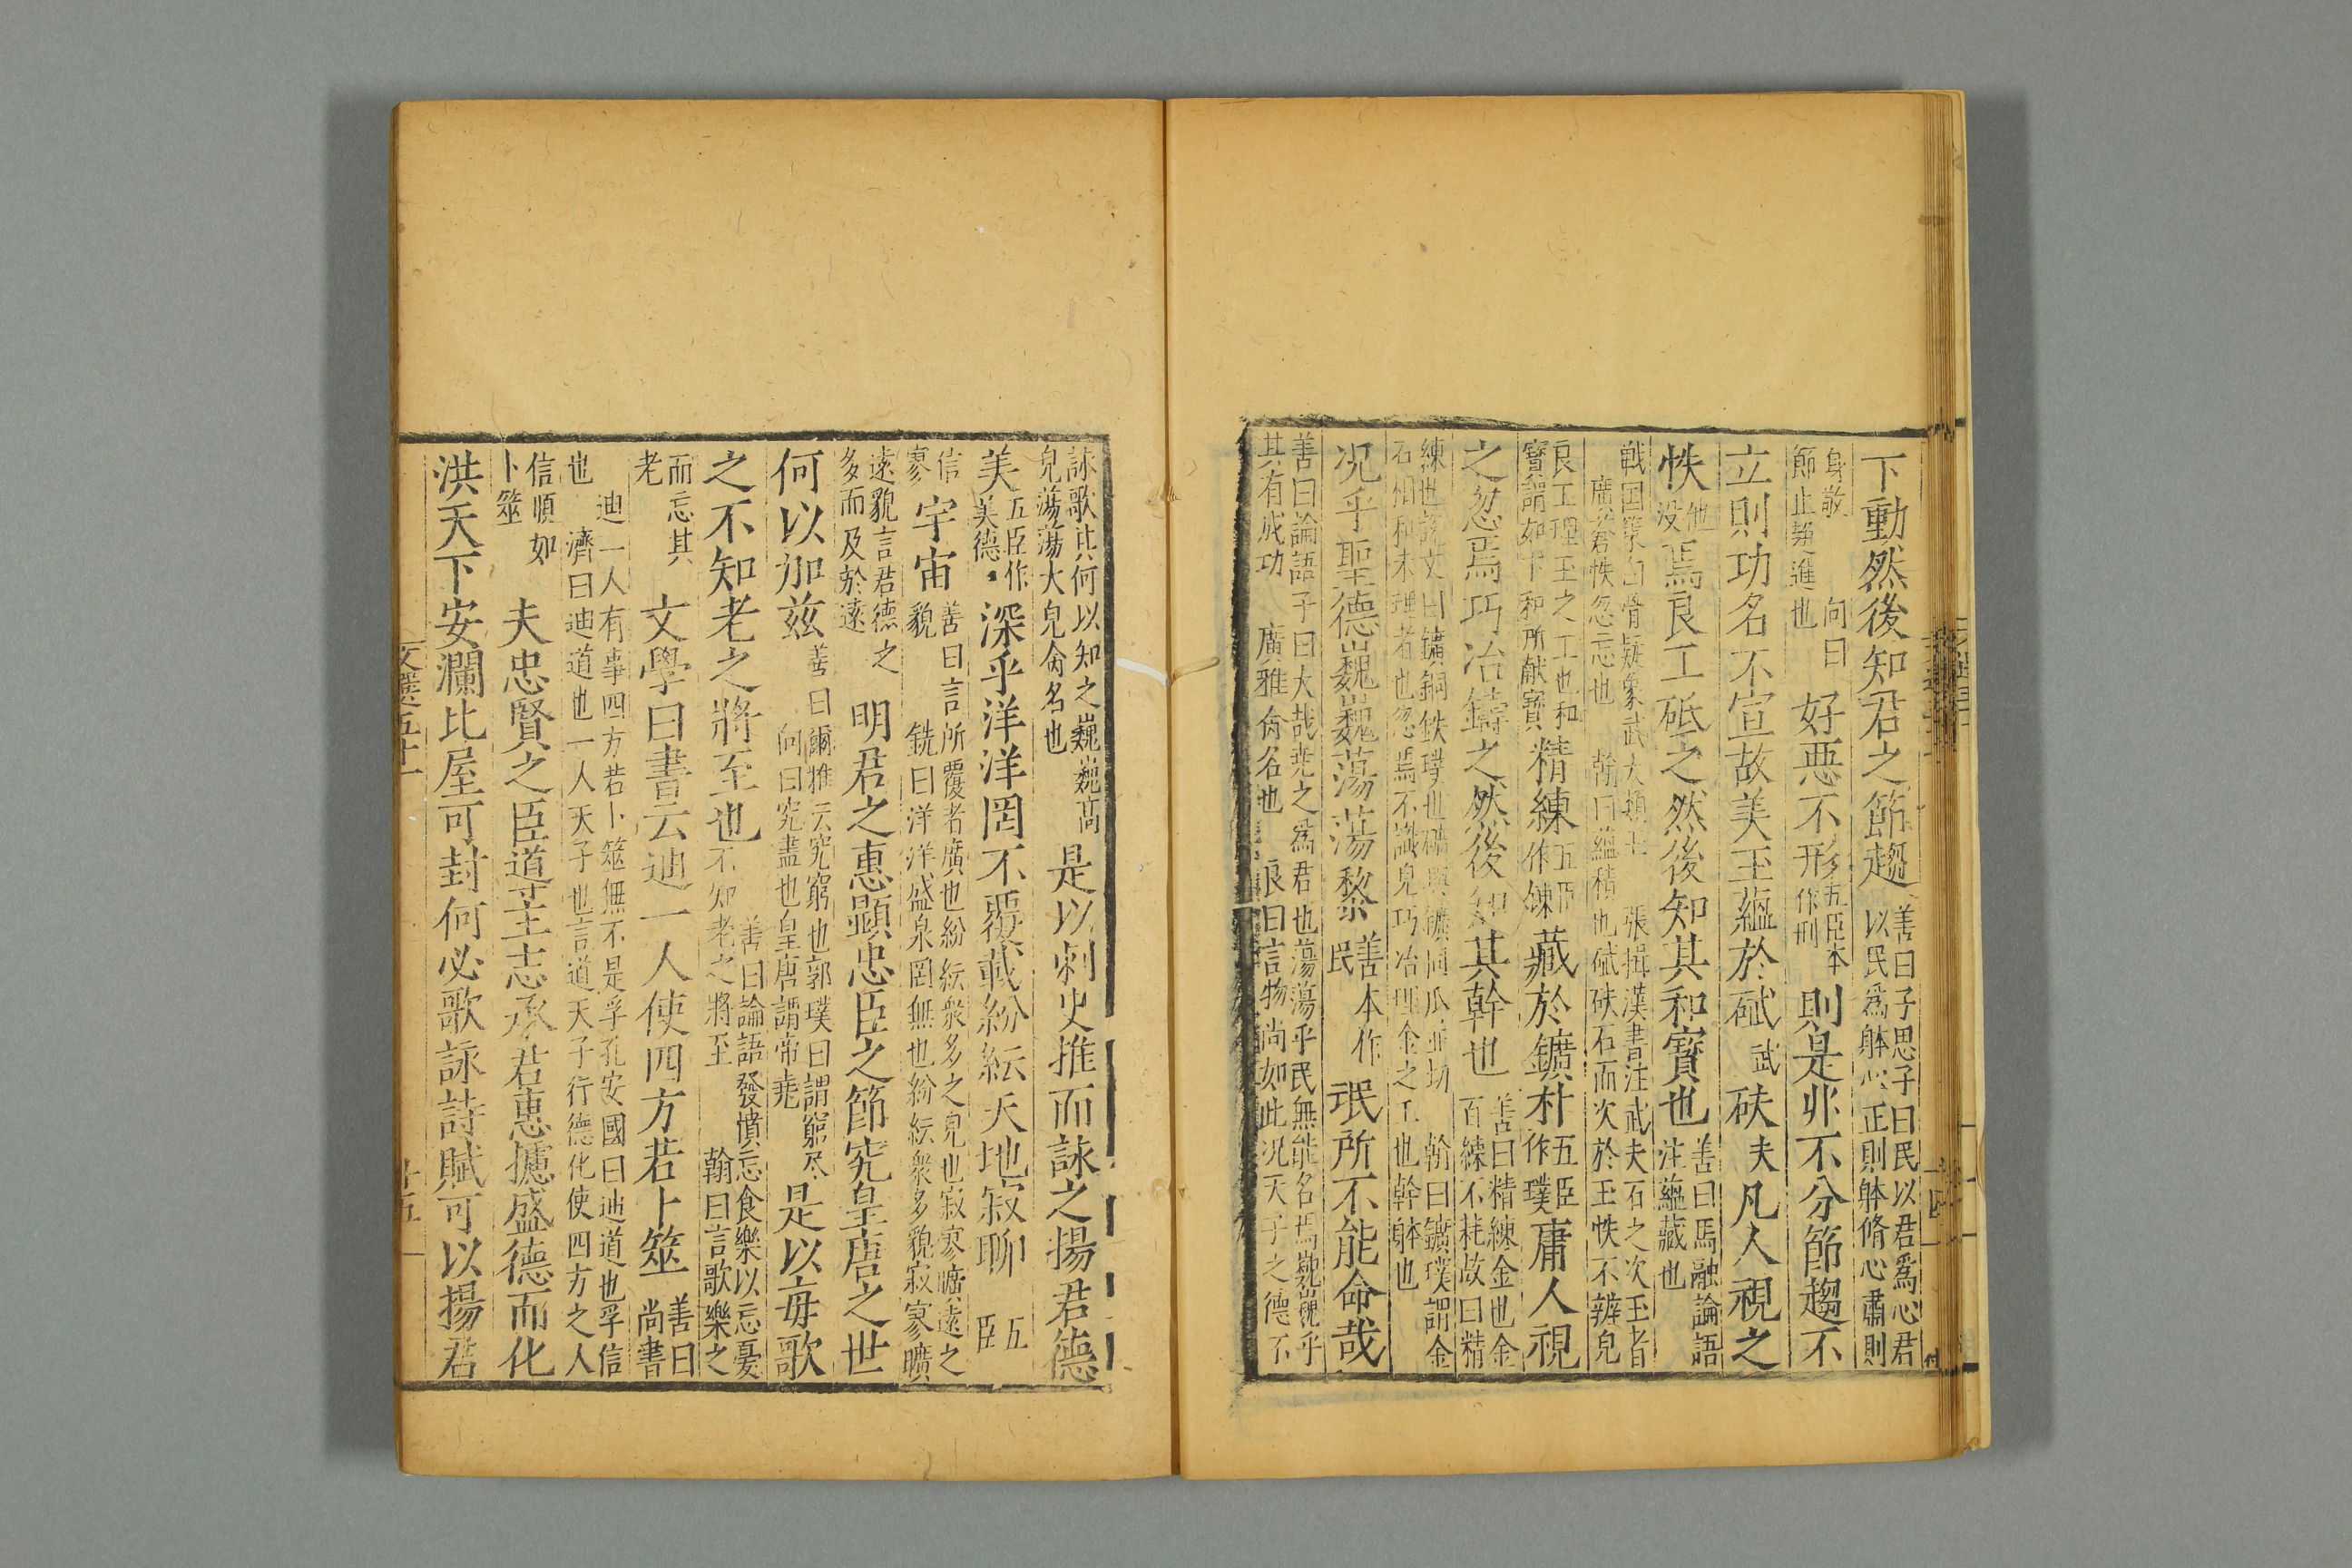 下動然後知君之節趨善曰子思子曰民以君爲心君
以民爲躰心正則躰脩心肅則
身敬
節止趨進也向曰好惡不形五臣本作刑則是非不分節趨不
立則功名不宣故美玉蘊於碔武砆夫凡人視之
怢他没焉良工砥之然後知其和寳也善曰馬融論語
注蘊藏也
戰國策曰骨疑象武夫類玉張揖漢書注武夫石之次玉者
廣蒼怢忽忘也翰曰蘊積也碔砆石而次於玉怢不辨皃
良工理玉之工也和
寳謂如卞和所獻寳精練五臣作錬藏於鑛朴五臣作璞庸人視
之忽焉巧冶鑄之然後知其幹也善曰精練金也金
百練不耗故曰精
練也説文曰鑛銅鉄璞也礦與鑛同瓜並切翰曰鑛璞謂金
石相和未理者也忽焉不識皃巧冶理金之工也幹躰也
况乎聖德巍巍蕩蕩黎善本作民氓所不能命哉
善曰論語子曰大哉尭之爲君也蕩蕩乎民無能名焉巍巍乎
其有成功廣雅命名也良曰言物尚如此况天子之德不
詠歌其何以知之巍巍高
皃蕩蕩大皃命名也是以刺史推而詠之揚君德
美五臣作美德深乎洋洋罔不覆載紛紜天地寂聊五臣
信
寥宇宙善曰言所覆者廣也紛紜衆多之皃也寂寥曠遠之
貌銑曰洋洋盛皃罔無也紛紜衆多貌寂寥曠
遠貌言君德之
多而及於遠明君之惠顯忠臣之節究皇唐之世
何以加兹善曰爾雅云究窮也郭璞曰謂窮尽
向曰究盡也皇唐謂帝尭是以毎歌
之不知老之將至也善曰論語發憤忘食樂以忘憂
不知老之將至翰曰言歌樂之
而忘其
老文學曰書云迪一人使四方若卜筮善曰
尚書
迪一人有事四方若卜筮無不是孚孔安國曰迪道也孚信
也濟曰迪道也一人天子也言道天子行德化使四方之人
信順如
卜筮夫忠賢之臣道主志承君惠攄盛德而化
洪天下安瀾比屋可封何必歌詠詩賦可以揚君
文選五十一
十五